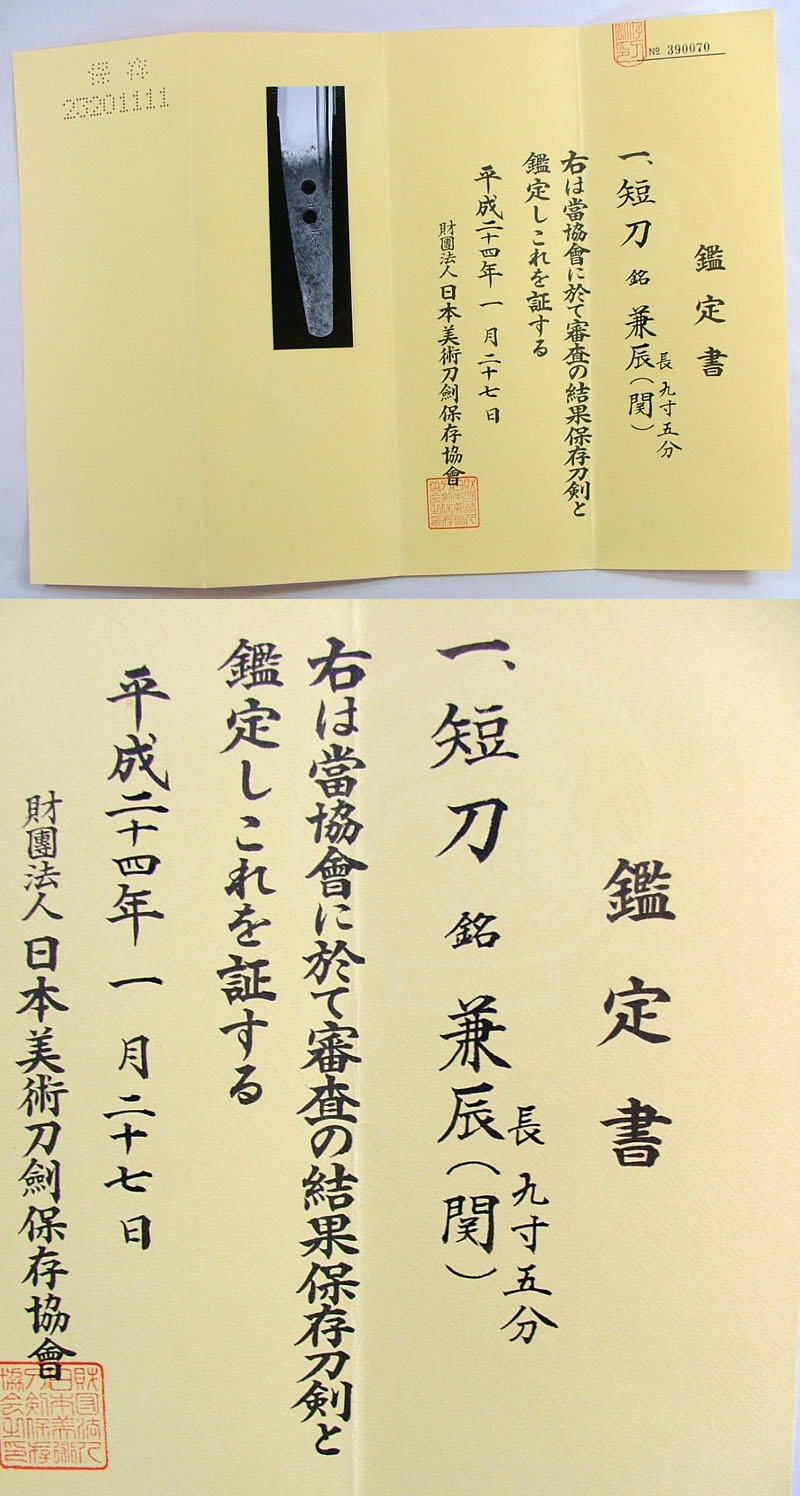 № 390070
鑑定書
一、短刀 銘 兼辰(関)
長 九寸五分
右は當協會に於て審査の結果保存刀剣と
鑑定しこれを証する
平成二十四年一月二十七日
財團法人 日本美術刀劍保存協會
保存
23201111
鑑定書
一、短刀 銘 兼辰(関)
長 九寸五分
右は當協會に於て審査の結果保存刀剣と
鑑定しこれを証する
平成二十四年一月二十七日
財團法人 日本美術刀劍保存協會